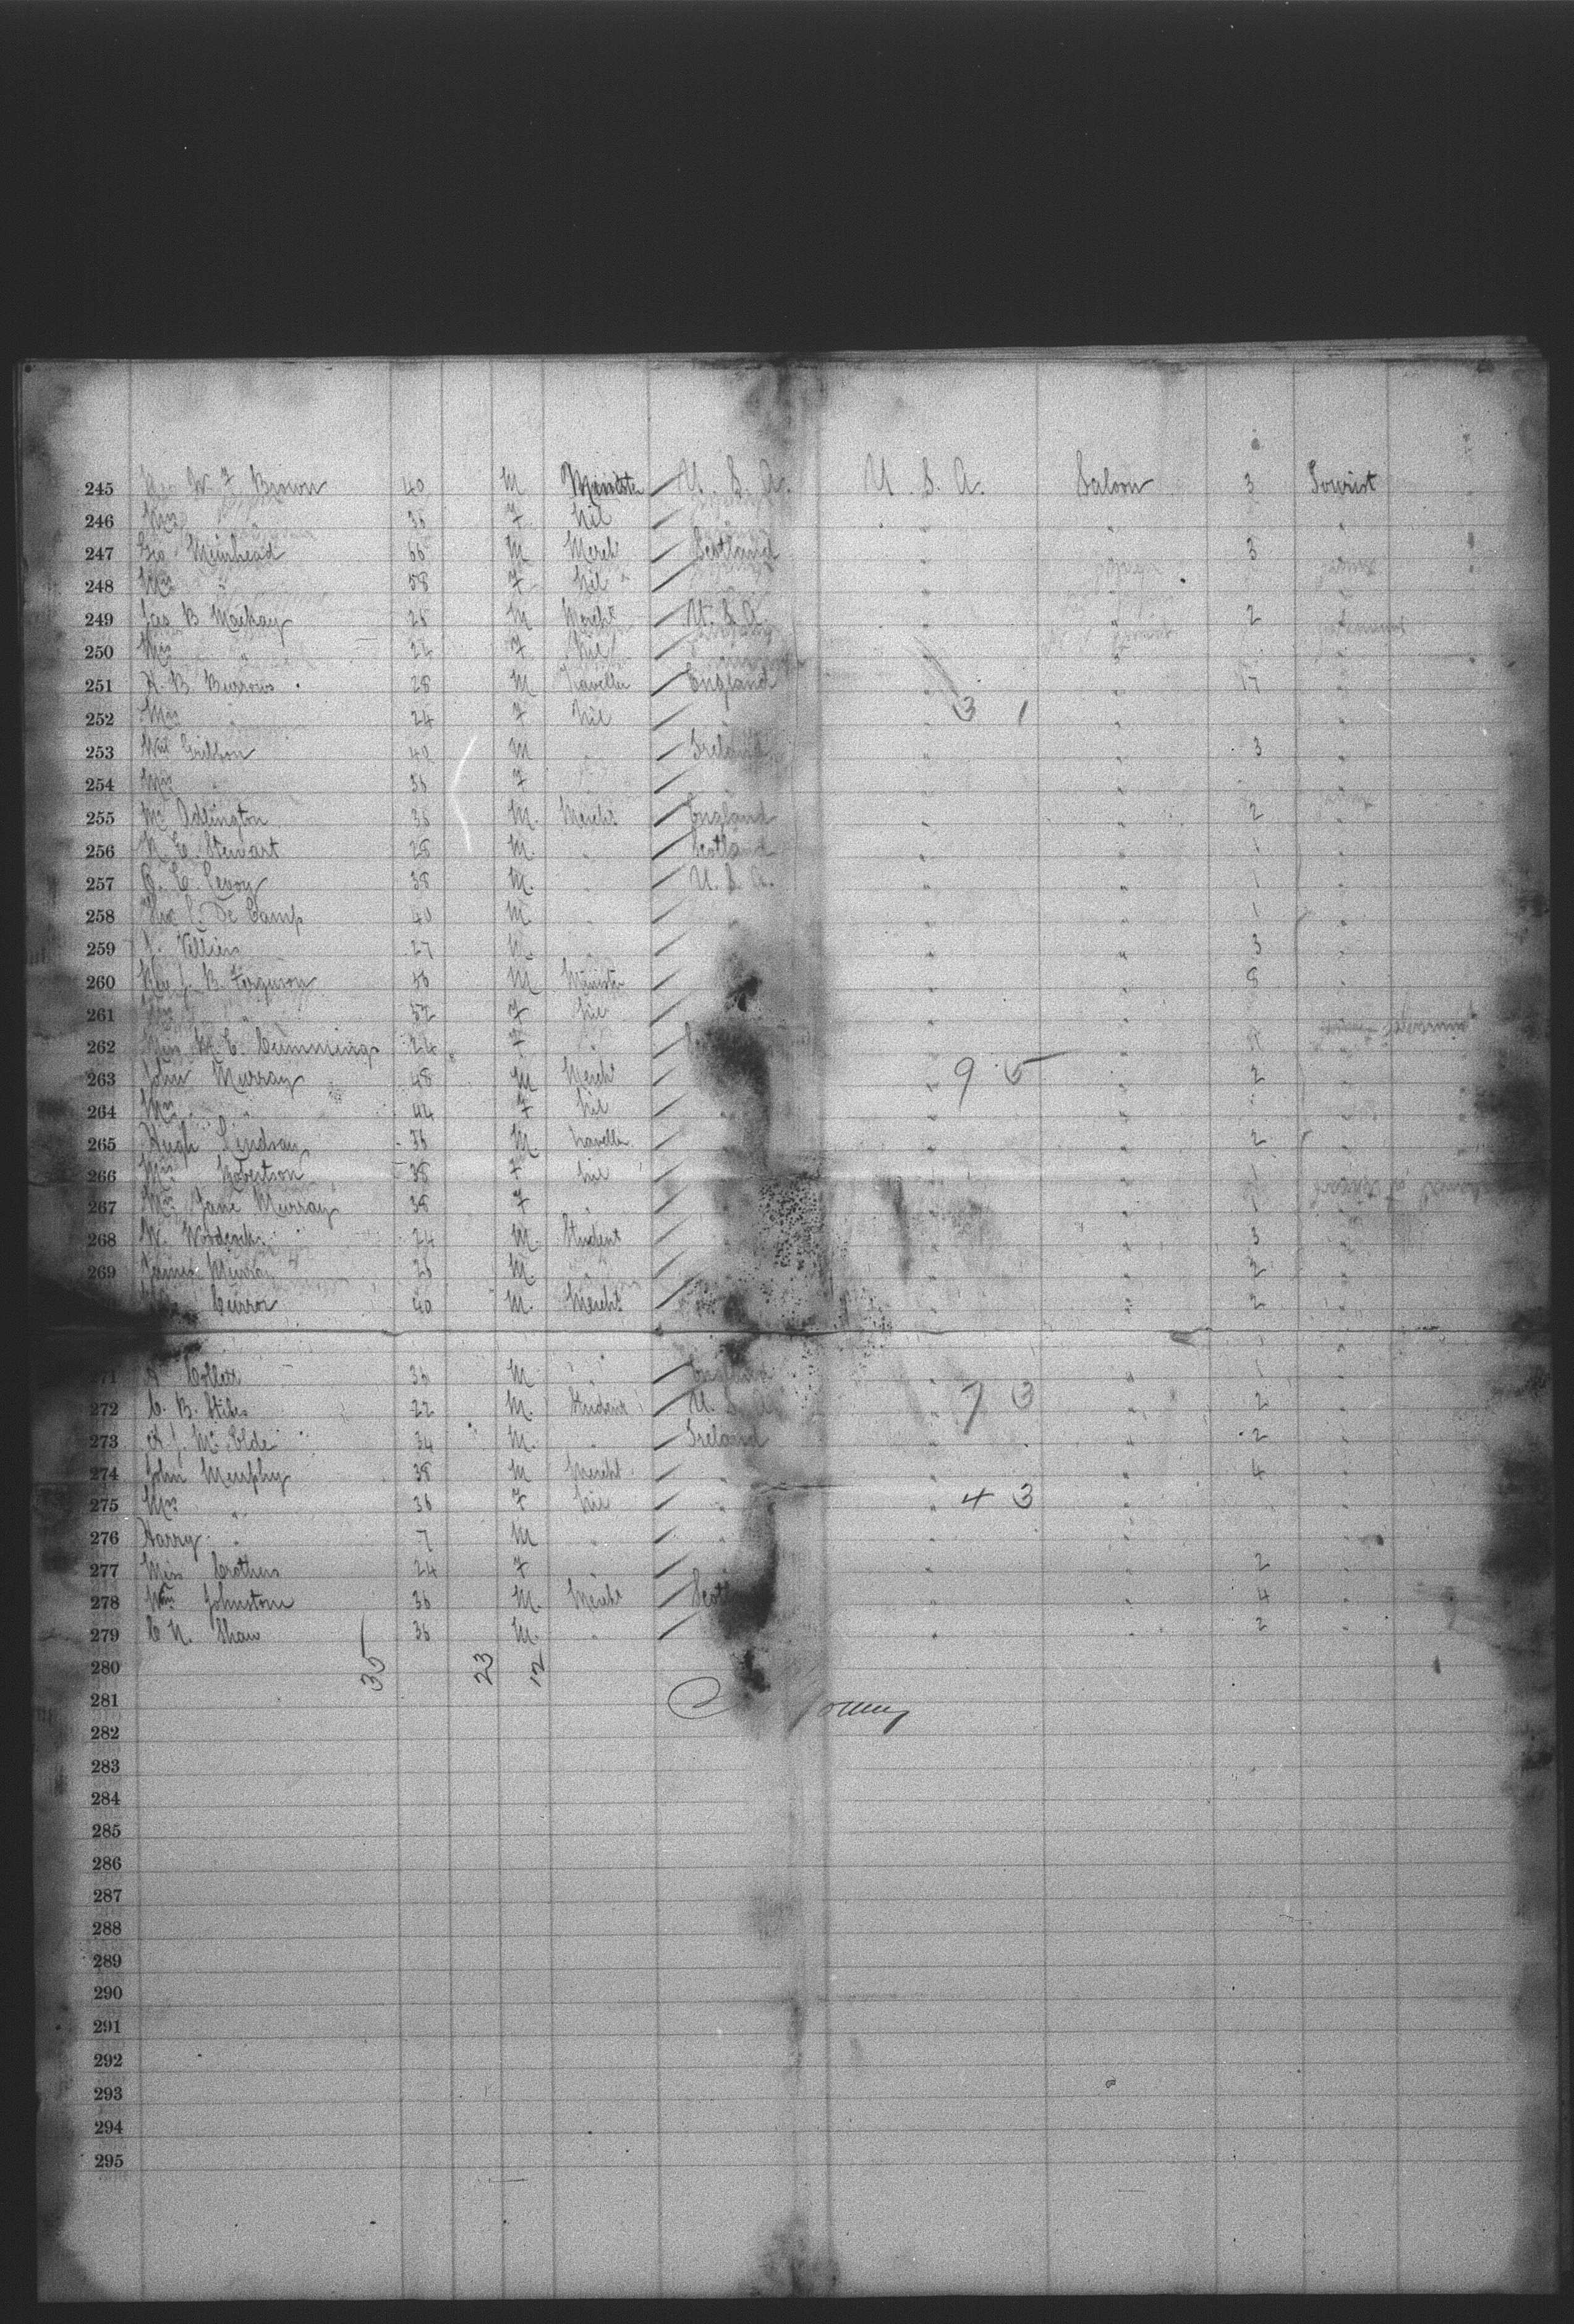 245 W. F. Brown 40 M Minister U. S. A. U. S. A. Saloon 3 Tourist
246 Mrs " 36 F Nil " " "
247 Geo Muirhead 66 M Mercht Scotland " " 3 "
248 Mrs " 58 F Nil " " " "
249 Jas B Mackay 28 M Mercht U. S. A. " " 2 "
250 Mrs " 24 F Nil " " "
251 A. B. Burrows 28 M Traveller England " " 17 "
252 Mrs " 24 F Nil " 3 1 " "
253 Wm Gribbon 40 M " Ireland " " 3 "
254 Mrs " 36 F " " " "
255 Mr Adlington 36 M. Mercht England " " 2 "
256 Stewart 28 M. " Scotland " " 1 "
257 38 M. " U. S. A. " " 1 "
258 De Camp 40 M. " " " 1 "
259 J. Villiers 27 M. " " 3 "
260 Rev J. B. Ferguson 56 M Minister " " 8 "
261 Mrs " 52 F Nil " " "
262 Miss M. E. Cummings 24 F " " " "
263 John Murray 48 M Mercht " 9 5 " 2 "
264 Mrs " 44 F Nil " " "
265 Hugh Lindsay 36 M. Traveller " " 2 "
266 Mrs Robertson 38 F Nil " " 1 "
267 Mrs Jane Murray 38 F " " " 1 "
268 W. Woodcock 24 M. Student " " 3 "
269 James Murray 26 M. " " " 2 "
Curror 40 M. Mercht " " 2 "
271 A Collett 36 M " England " " 1 "
272 C. B. Stiles 22 M. Student U. S. A. " 7 3 " 2 "
273 34 M. " Ireland " " 2 "
274 John Memphry 38 M Mercht " " " 4 "
275 Mrs " 36 F Nil " " 4 3 " "
276 Harry " 7 M " " " " "
277 Miss Crothers 24 F " " " 2 "
278 Wm Johnstone 36 M. Mercht Scot " " 4 "
279 C N. Shaw 36 M. " " " 2 "
280 35 23 12
281
282
283
284
285
286
287
288
289
290
291
292
293
294
295